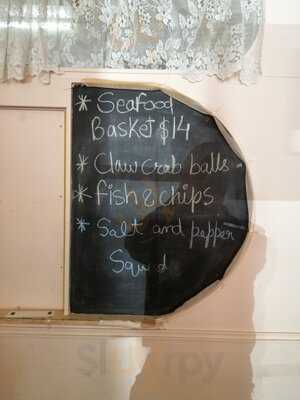 * Seafood
Basket $14
* Claw crab balls -
* fish & chips
* Salt and pepper
Squid
Sluurpy